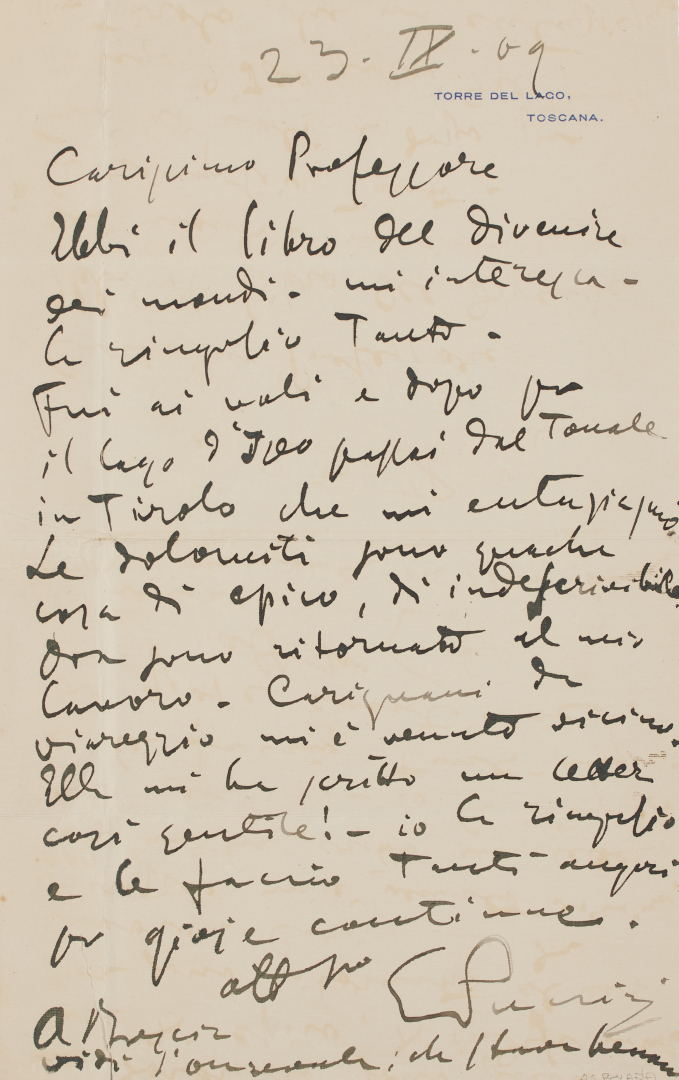 23. IX. 09
TORRE DEL LAGO,
TOSCANA.
Carissimo Professore
Ebbi il libro del divenire
dei mondi - mi interessa -
La ringrazio tanto -
Fui ai e dopo per
il lago d'Iseo passai dal Tonale
in Tirolo che mi entusiasmò.
Le dolomiti sono qualche
cosa di epico, di indescrivibile
Ora sono ritornato al mio
lavoro - Carignani da
viareggio mi è venuto vicino.
Ella mi ha scritto una letter
così gentile! - io La ringrazio
e le faccio tanti auguri
per gioje continue.
aff suo GPuccini
A Brescia
vidi l'onorevole; che stava benone